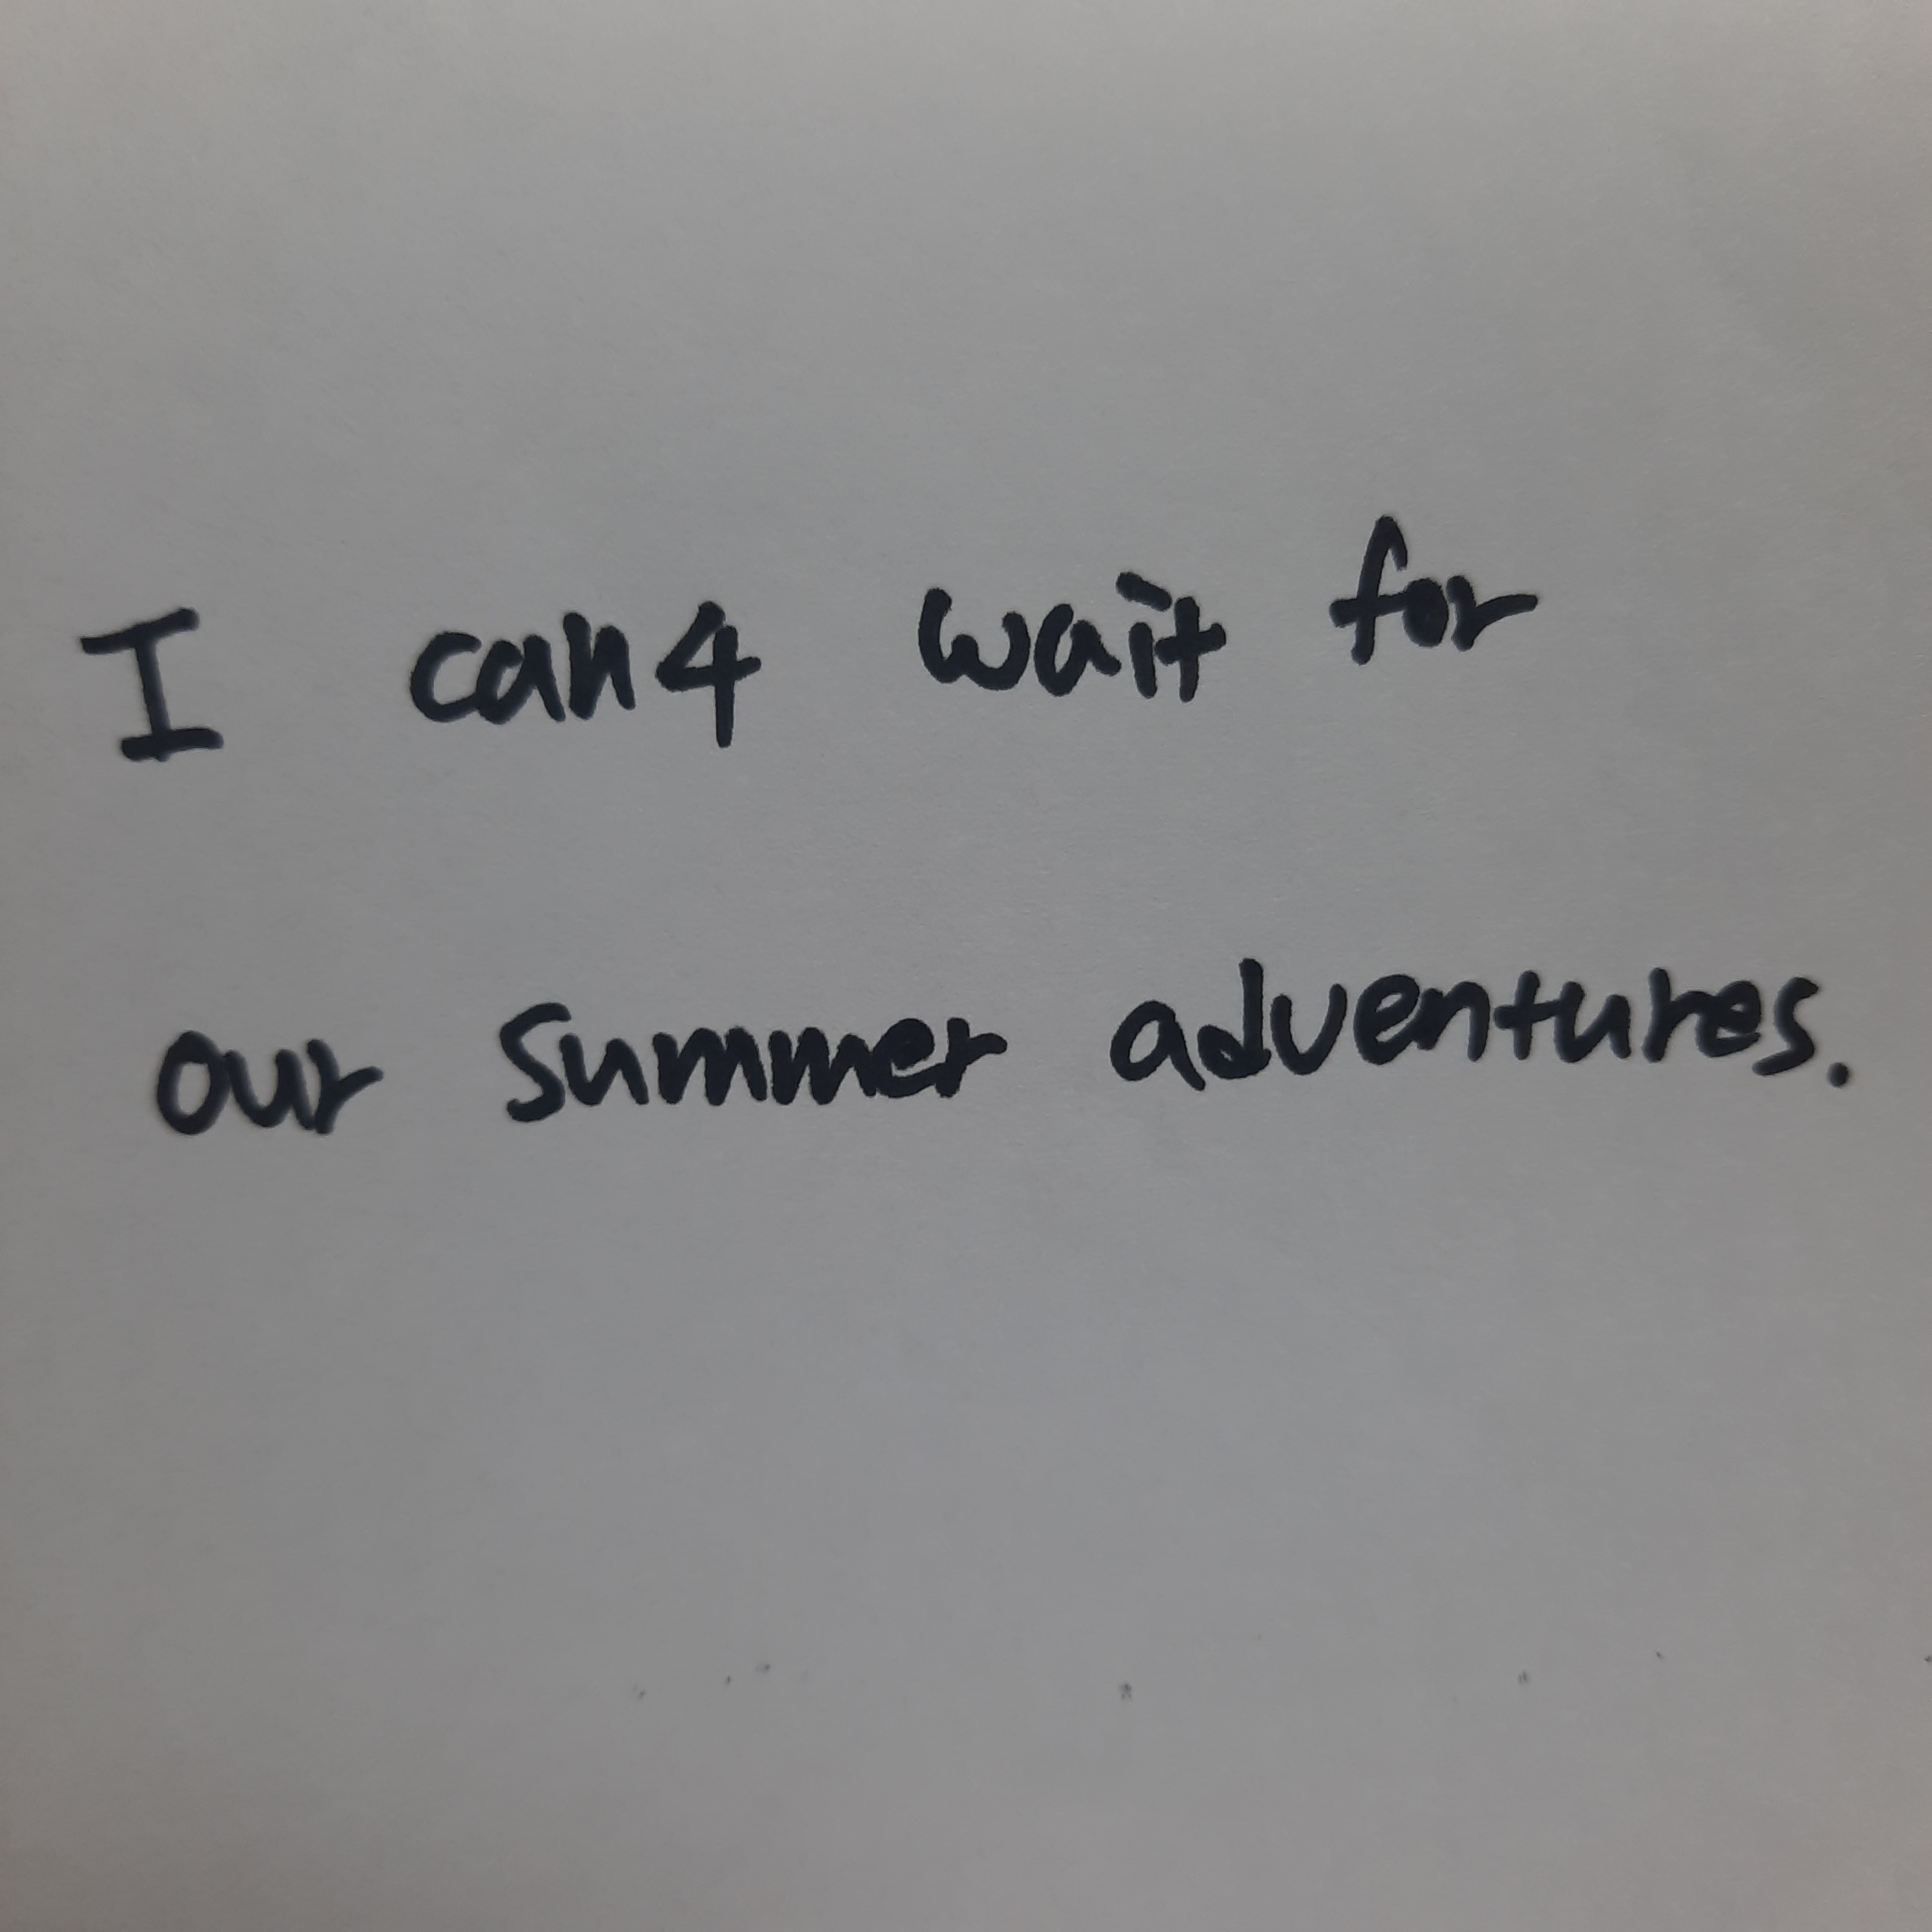 I can4 wait for
our summer adventures.